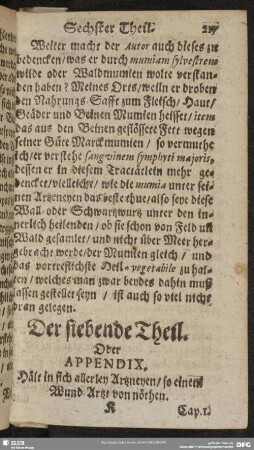 Sechster Theil. 217
Weiter macht der Autor auch dieses zu
bedencken / was er durch mumiam sylvestrem
wilde oder Waldmumien wolte verstan-
den haben? Meines Orts / weiln er droben
den Nahrungs Safft zum Fleisch / Haut /
Geäder und Beinen Mumien heisset / item
das aus den Beinen geflössete Fett wegen
seiner Güte Marckmumien / so vermuthe
ich / er verstehe sangvinem symphyti majoris,
dessen er in diesem Tractätlein mehr ge-
dencket / vielleicht / wie die mumia unter sei-
nen Artzeneyen das beste thue / also sey diese
Wall- oder Schwartzwurtz unter den in-
nerlich heilenden / ob sie schon von Feld und
Wald gesamlet / und nicht über Meer her-
gebracht werde / der Mumien gleich / und
das vortreflichste Heil-vegetabile zu hal-
ten / welches man zwar beydes dahin muß
lassen gestellet seyn / ist auch so viel nicht
dran gelegen.
Der siebende Theil.
Oder
APPENDIX.
Hält in sich allerley Artzneyen / so einem
Wund-Artzt von nöthen.
K Cap. I.
SLUB
DFG